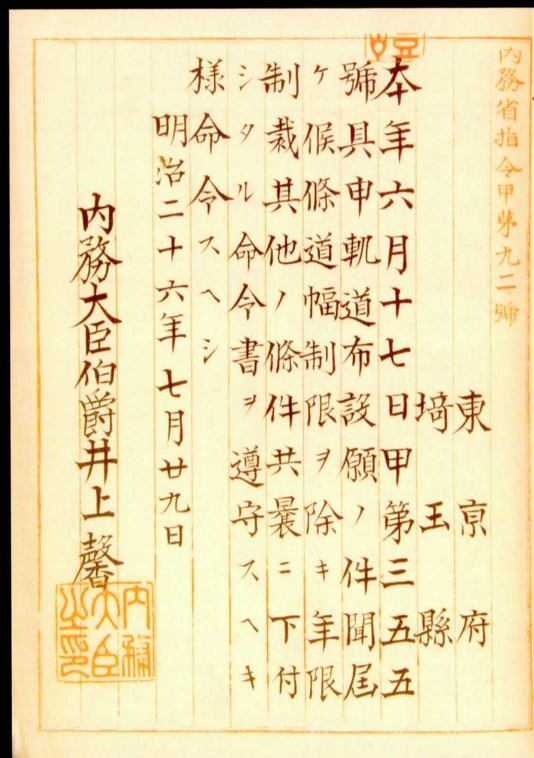 内務省指令甲第九二號
東京府
埼玉縣
本年六月十七日甲第三五五
號具申軌道布設願ノ件聞届
ケ候條道幅制限ヲ除キ年限
制裁其他ノ條件共曩ニ下付
シタル命令書ヲ遵守スヘキ
様命令スヘシ
明治二十六年七月廿九日
内務大臣伯爵井上馨
内務
大臣
之印